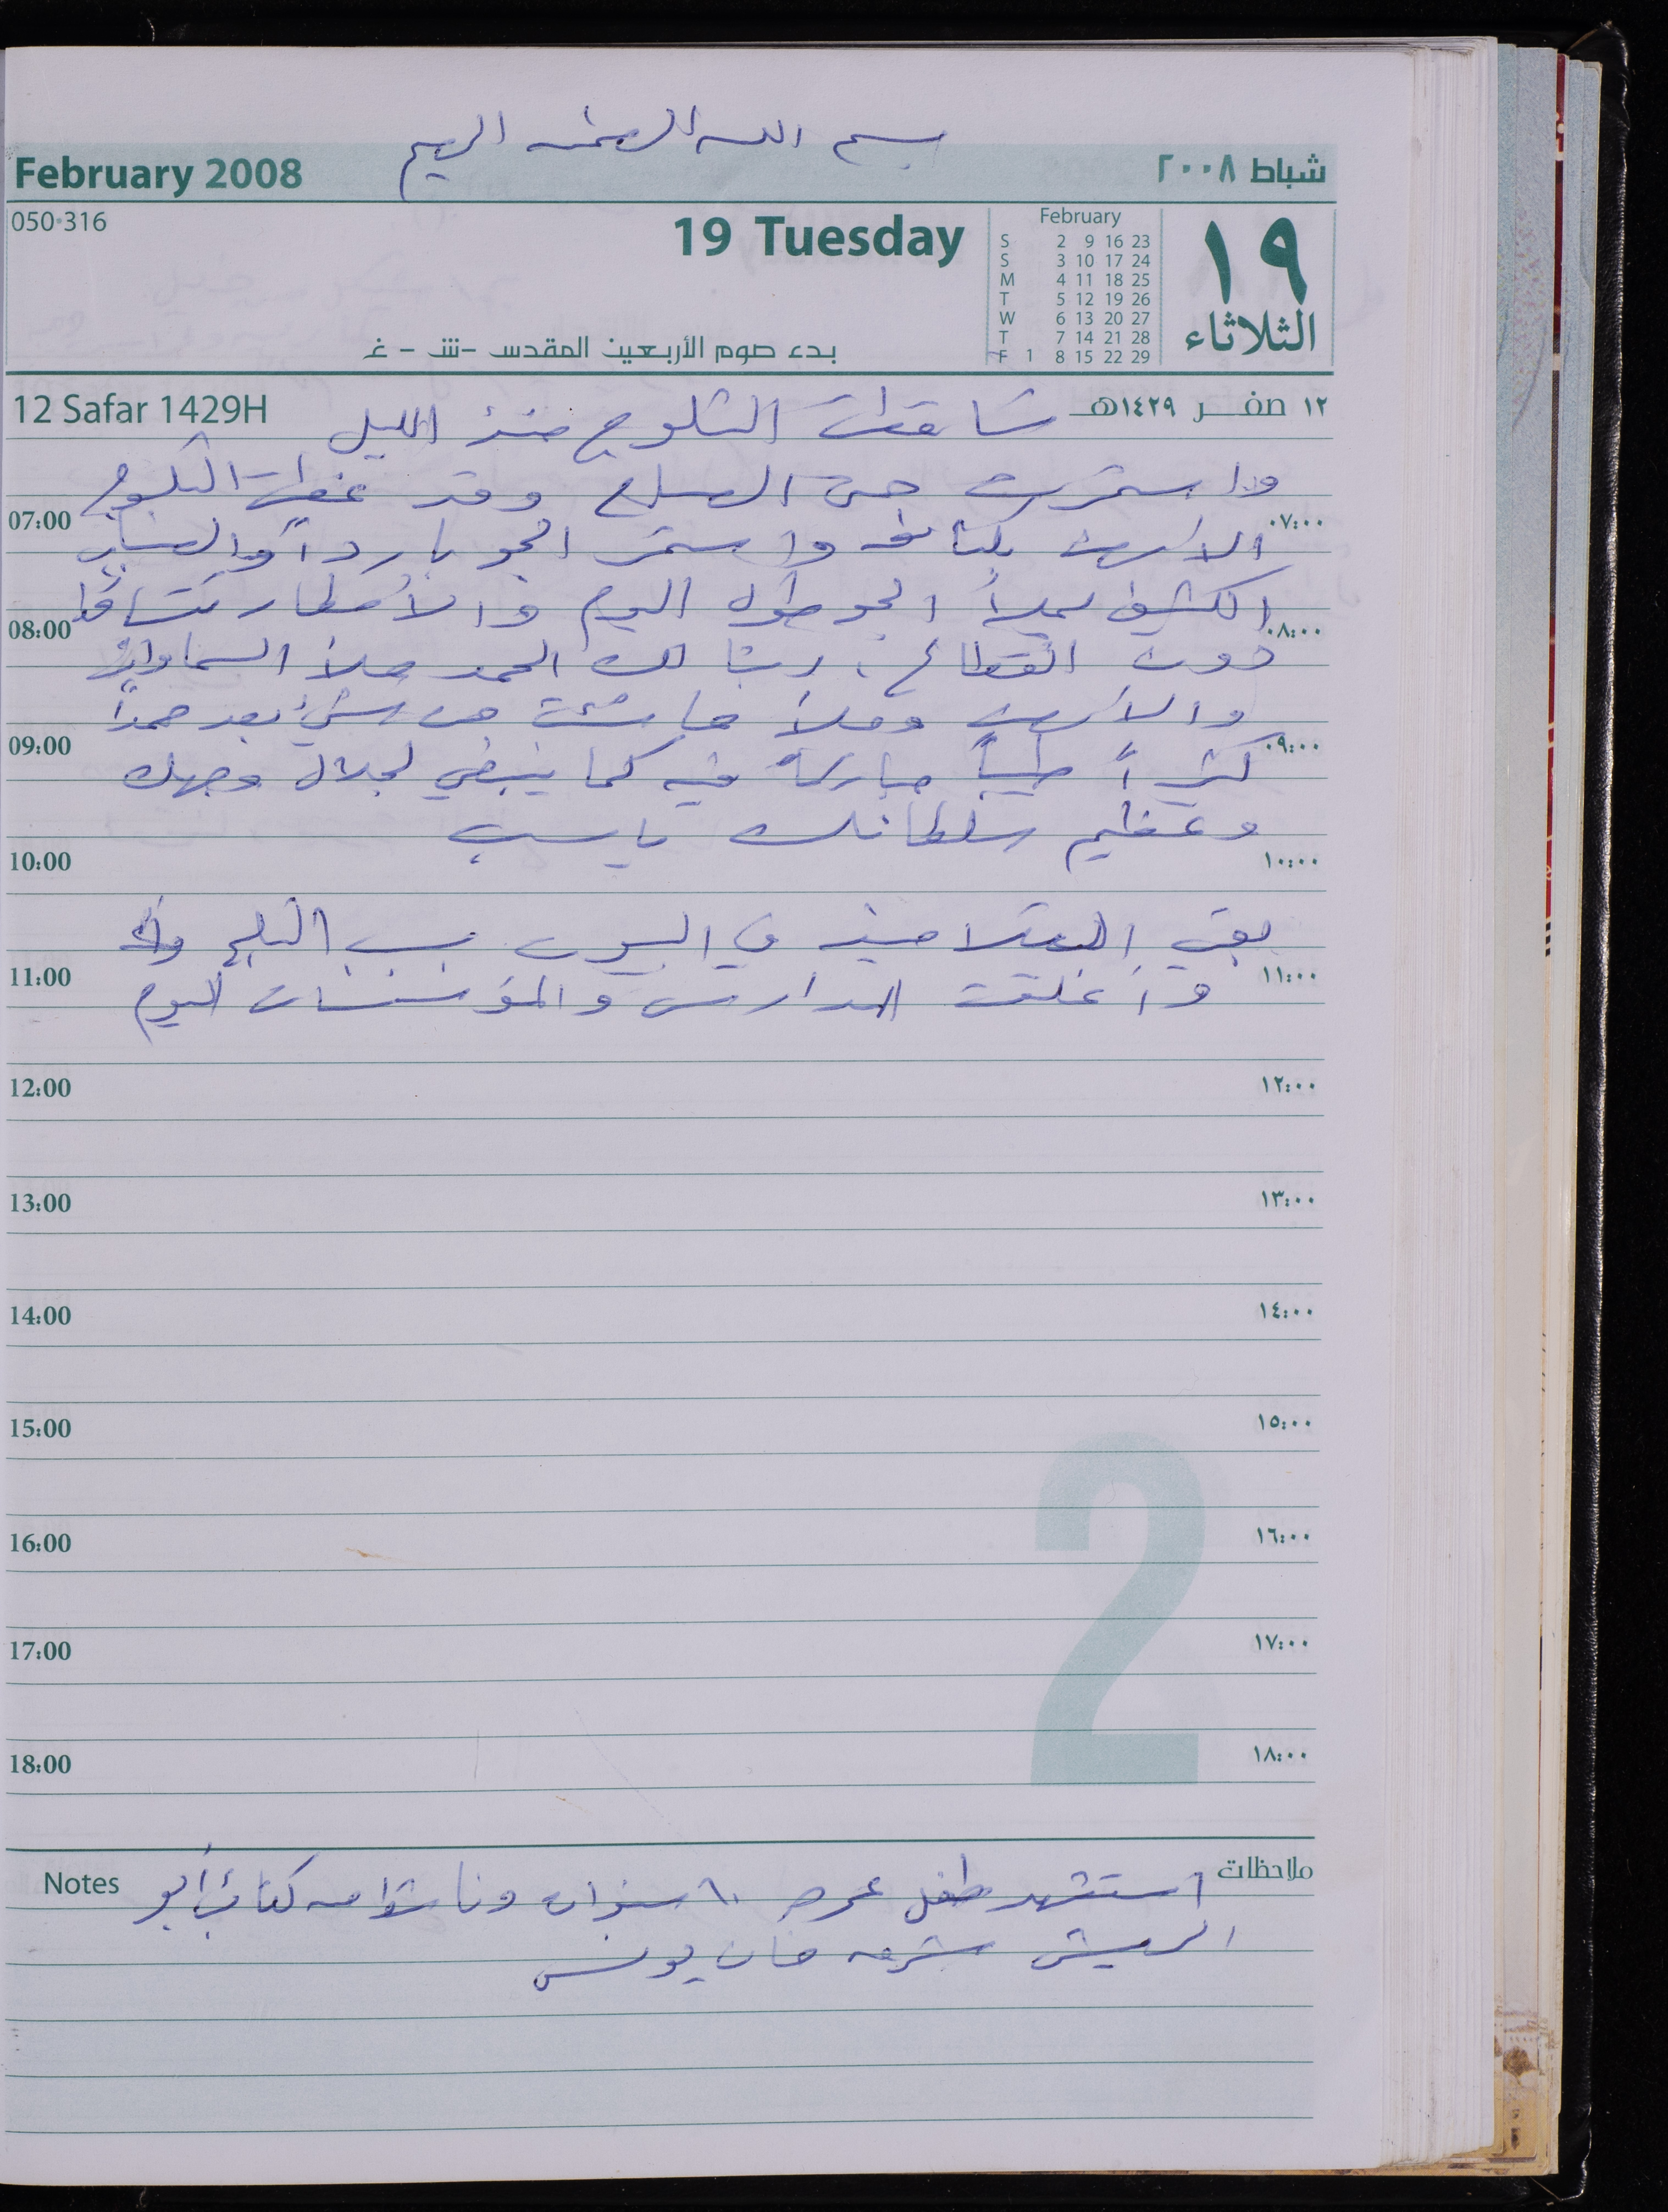 بسم الله الرحمن الرحيم
February 2008
شباط ٢٠٠٨
050-316
19 Tuesday
February
S 2 9 16 23
S 3 10 17 24
M 4 11 18 25
T 5 12 19 26
W 6 13 20 27
T 7 14 21 28
F 1 8 15 22 29
١٩
الثلاثاء
بدء صوم الأربعين المقدس -ش - غ
12 Safar 1429H
١٢ صفر ١٤٢٩هـ
تساقطت الثلوج منذ الليل
واستمرت حتى الصباح وقد غطت الثلوج
07:00 ٠٧:٠٠
الأرض بكثافه واستمر الجو بارداً والضباب
الكثيف يملأ الجو طول اليوم والأمطار تتساقط
08:00 ٠٨:٠٠
دون انقطاع . ربنا لك الحمد ملأ السماوات
والأرض وملأ ما شئت من شيء بعد حمداً
09:00 ٠٩:٠٠
كثيراً طيباً مباركاً فيه كما ينبغي لجلال وجهك
وعظيم سلطانك يا رب
10:00 ١٠:٠٠
بقي التلاميذ في البيوت بسبب الثلج
11:00 ١١:٠٠
وأغلقت المدارس والمؤسسات اليوم
12:00 ١٢:٠٠
13:00 ١٣:٠٠
14:00 ١٤:٠٠
15:00 ١٥:٠٠
16:00 ١٦:٠٠
17:00 ١٧:٠٠
18:00 ١٨:٠٠
2
Notes
ملاحظات
استشهد طفل عمره ١٠ سنوات وناشط من كتائب أبو
الريش شرق خان يونس